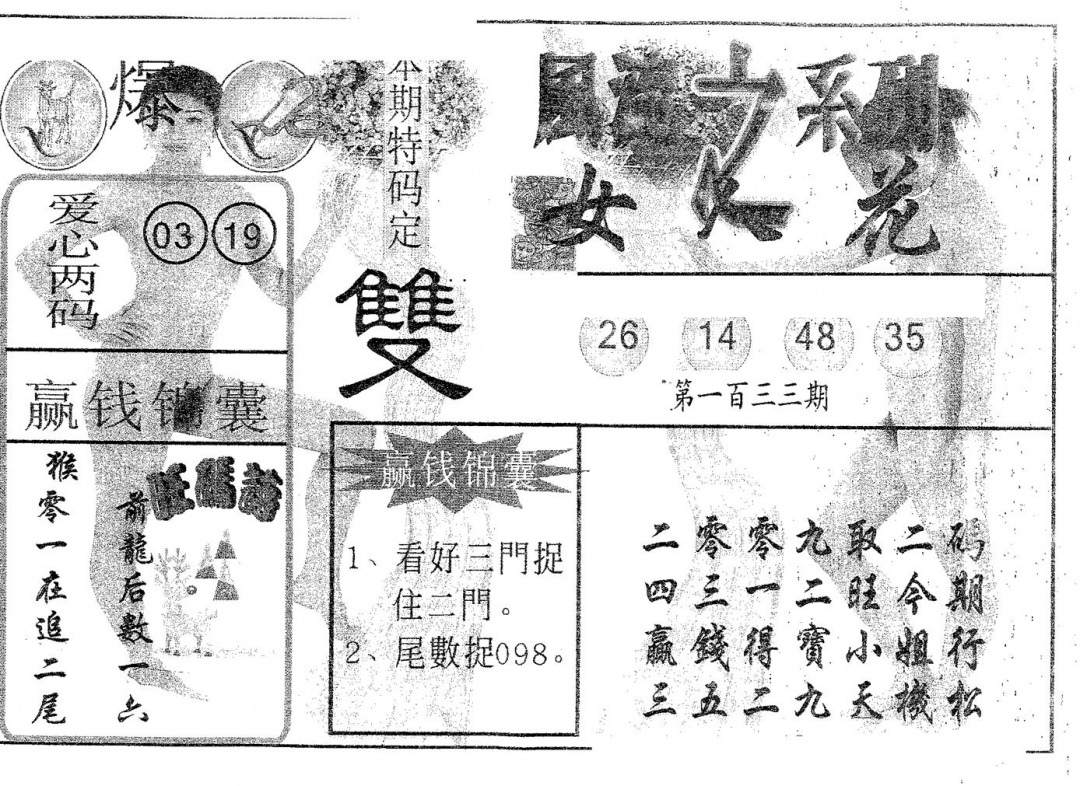 爆
本期特码定
雙
爱心两码
03 19
赢钱锦囊
旺碼詩
前龍后数一六
猴零一在追二尾
之系列
女人花
26 14 48 35
第一百三三期
赢钱锦囊
1、看好三門捉
住二門。
2、尾數捉098。
二零零九取二码
四三一二旺今期
赢錢得寶小姐行
三五二九天機松